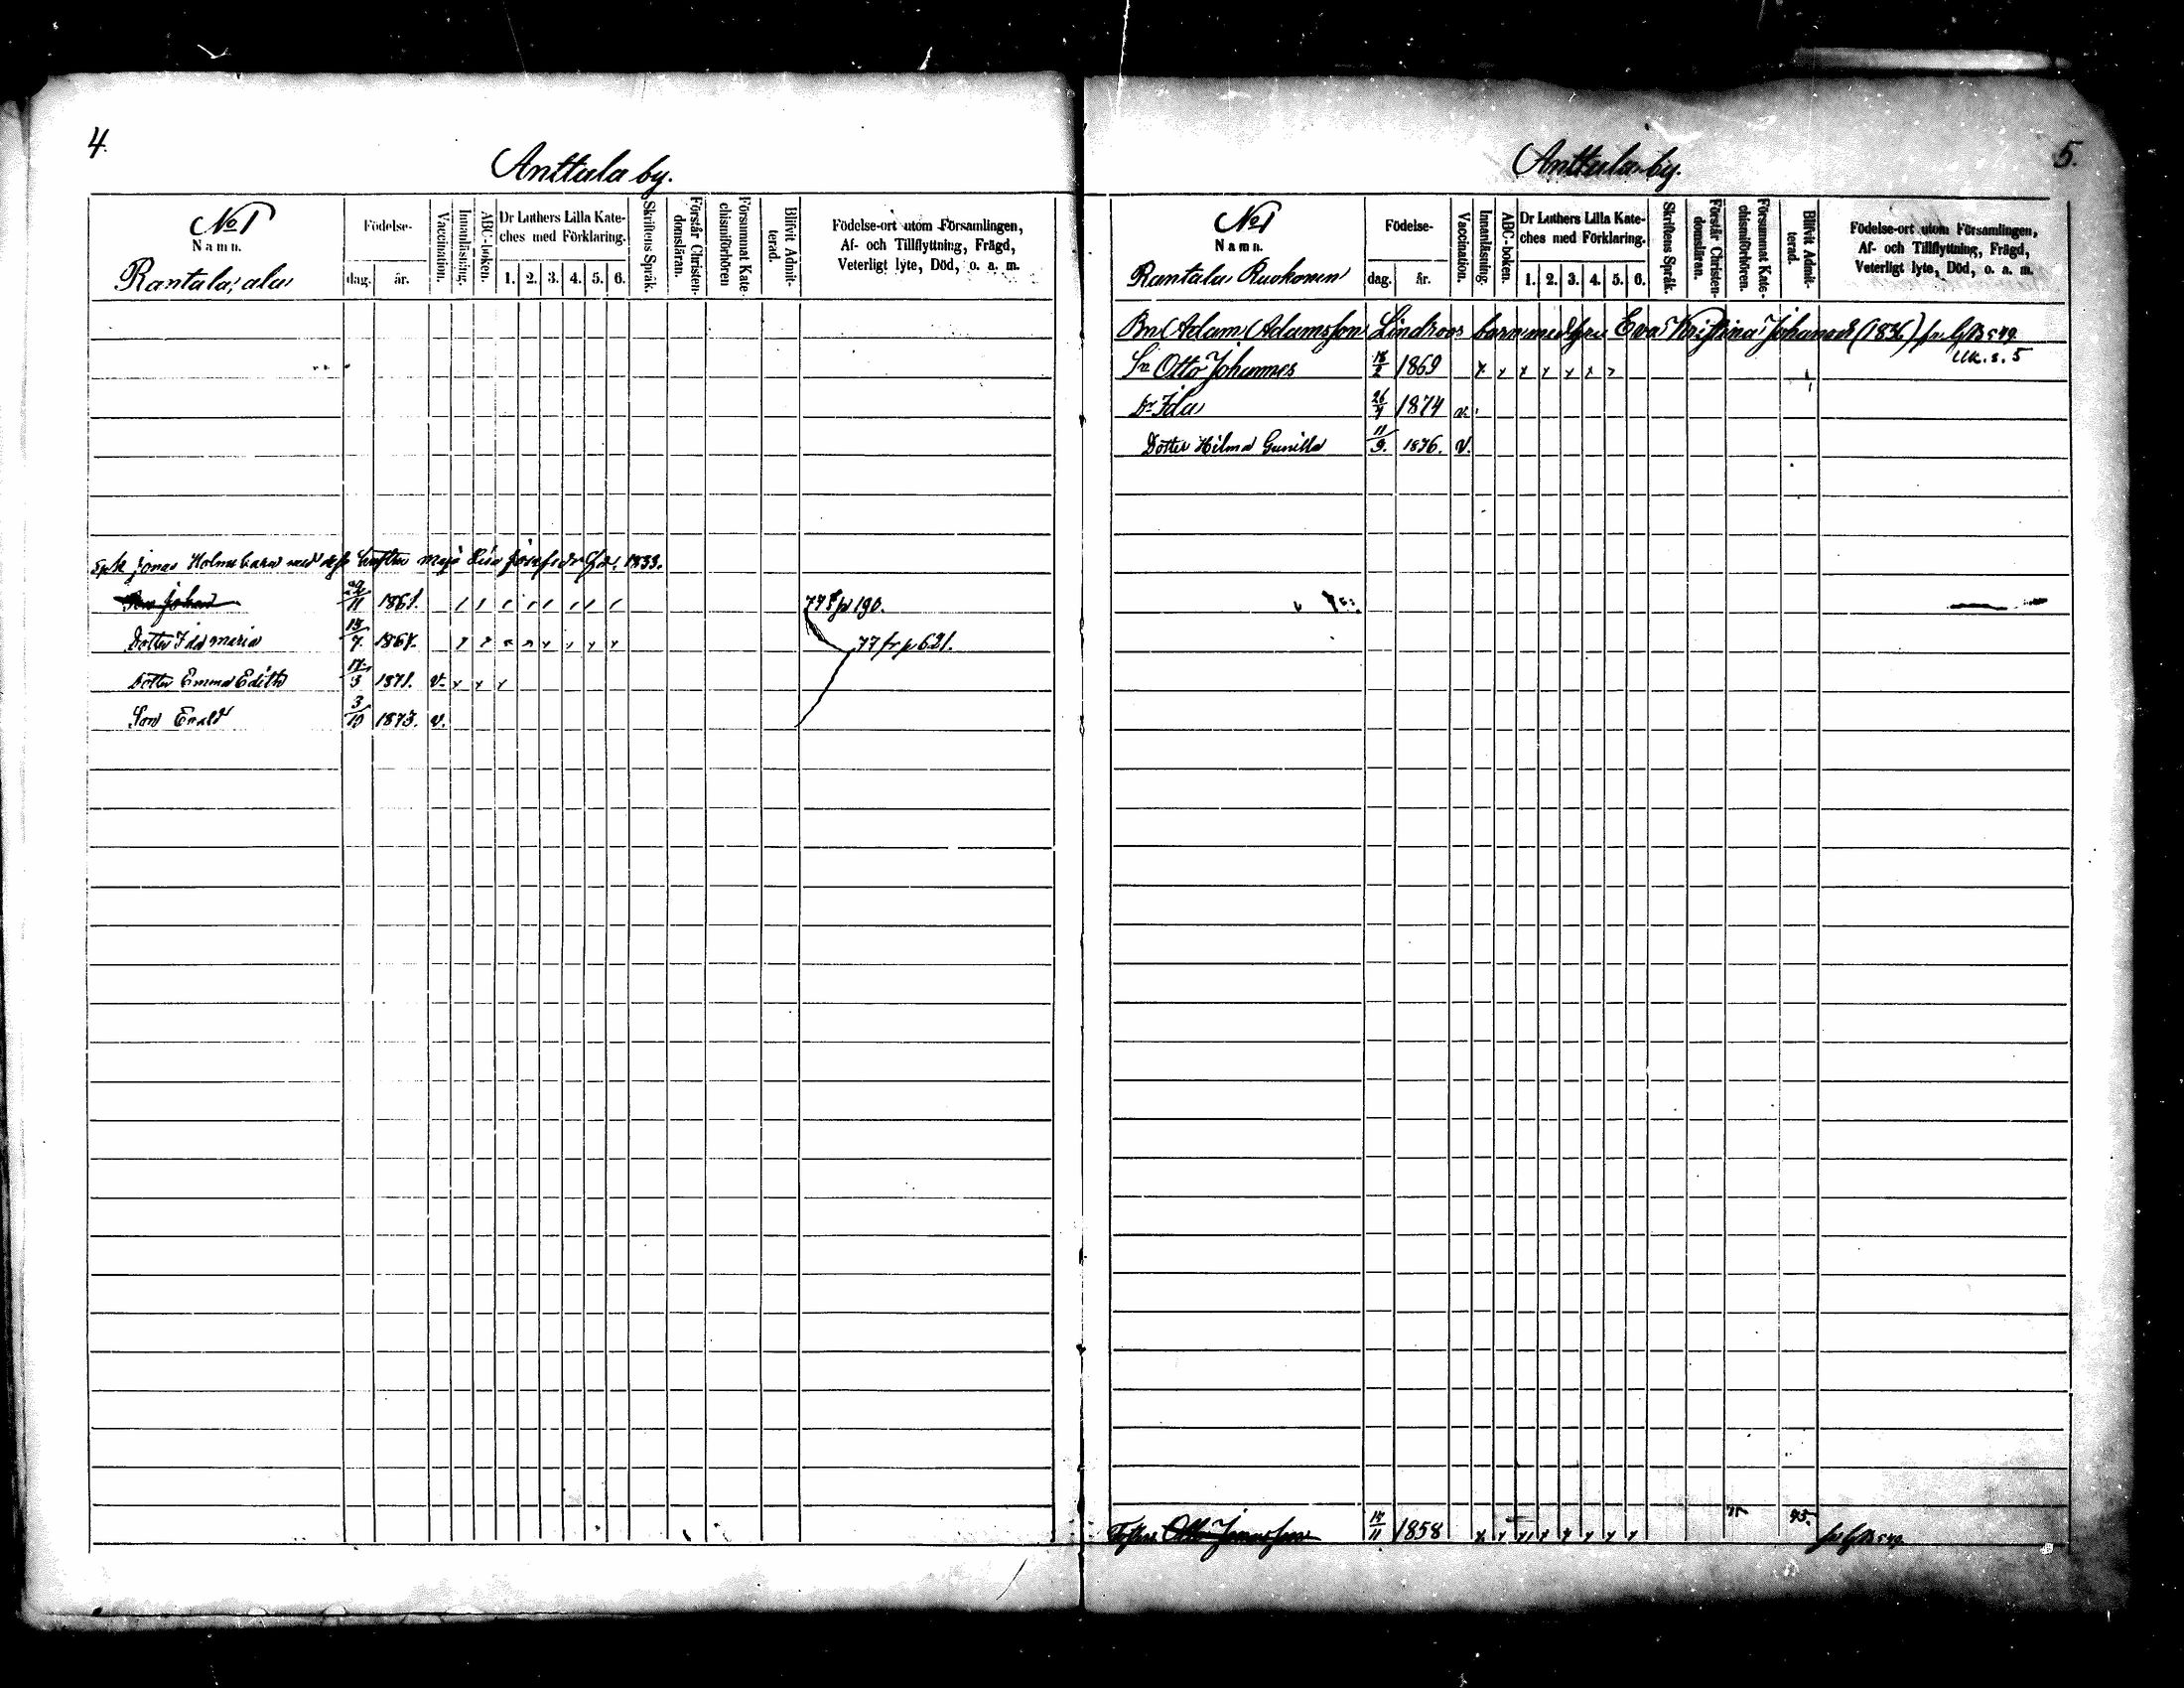 4.
Anttula by.
No 1
Namn.
Rantala, ala
Födelse-
dag.
år.
Vaccination.
Innanläsning.
ABC-boken.
Dr Luthers Lilla Kate-
ches med Förklaring.
1. 2. 3. 4. 5. 6.
Skriftens Språk.
Förstår Christen-
domsläran.
Försummat Kate-
chismiförhören
Blifvit Admit-
terad.
Födelse-ort utom Församlingen,
Af- och Tillflyttning, Frägd,
Veterligt lyte, Död, o. a. m.
Jonas Holms barn med Maja Lisa 1833.
Son Johan 29/11 1861. 77 p 190.
Dotter Ida Maria 15/7. 1867. 77 fr p 631.
Dotter Emma Edith 17/3 1871. v.
Son Evald 3/10 1873. v.
5.
Anttula by.
No 1
Namn.
Rantala Ruokonen
Födelse-
dag.
år.
Vaccination.
Innanläsning.
ABC-boken.
Dr Luthers Lilla Kate-
ches med Förklaring.
1. 2. 3. 4. 5. 6.
Skriftens Språk.
Förstår Christen-
domsläran.
Försummat Kate-
chismiförhören.
Blifvit Admit-
terad.
Födelse-ort utom Församlingen,
Af- och Tillflyttning, Frägd,
Veterligt lyte, Död, o. a. m.
Adam Adamsson Lindroos barn med Eva Kristina (1836)
Uk. s. 5
Sn Otto Johannes 18/2 1869
Dr Ida 26/4 1874 v.
Dotter Hilma Gunilla 11/9. 1876. v.
Otto 14/11 1858 75.